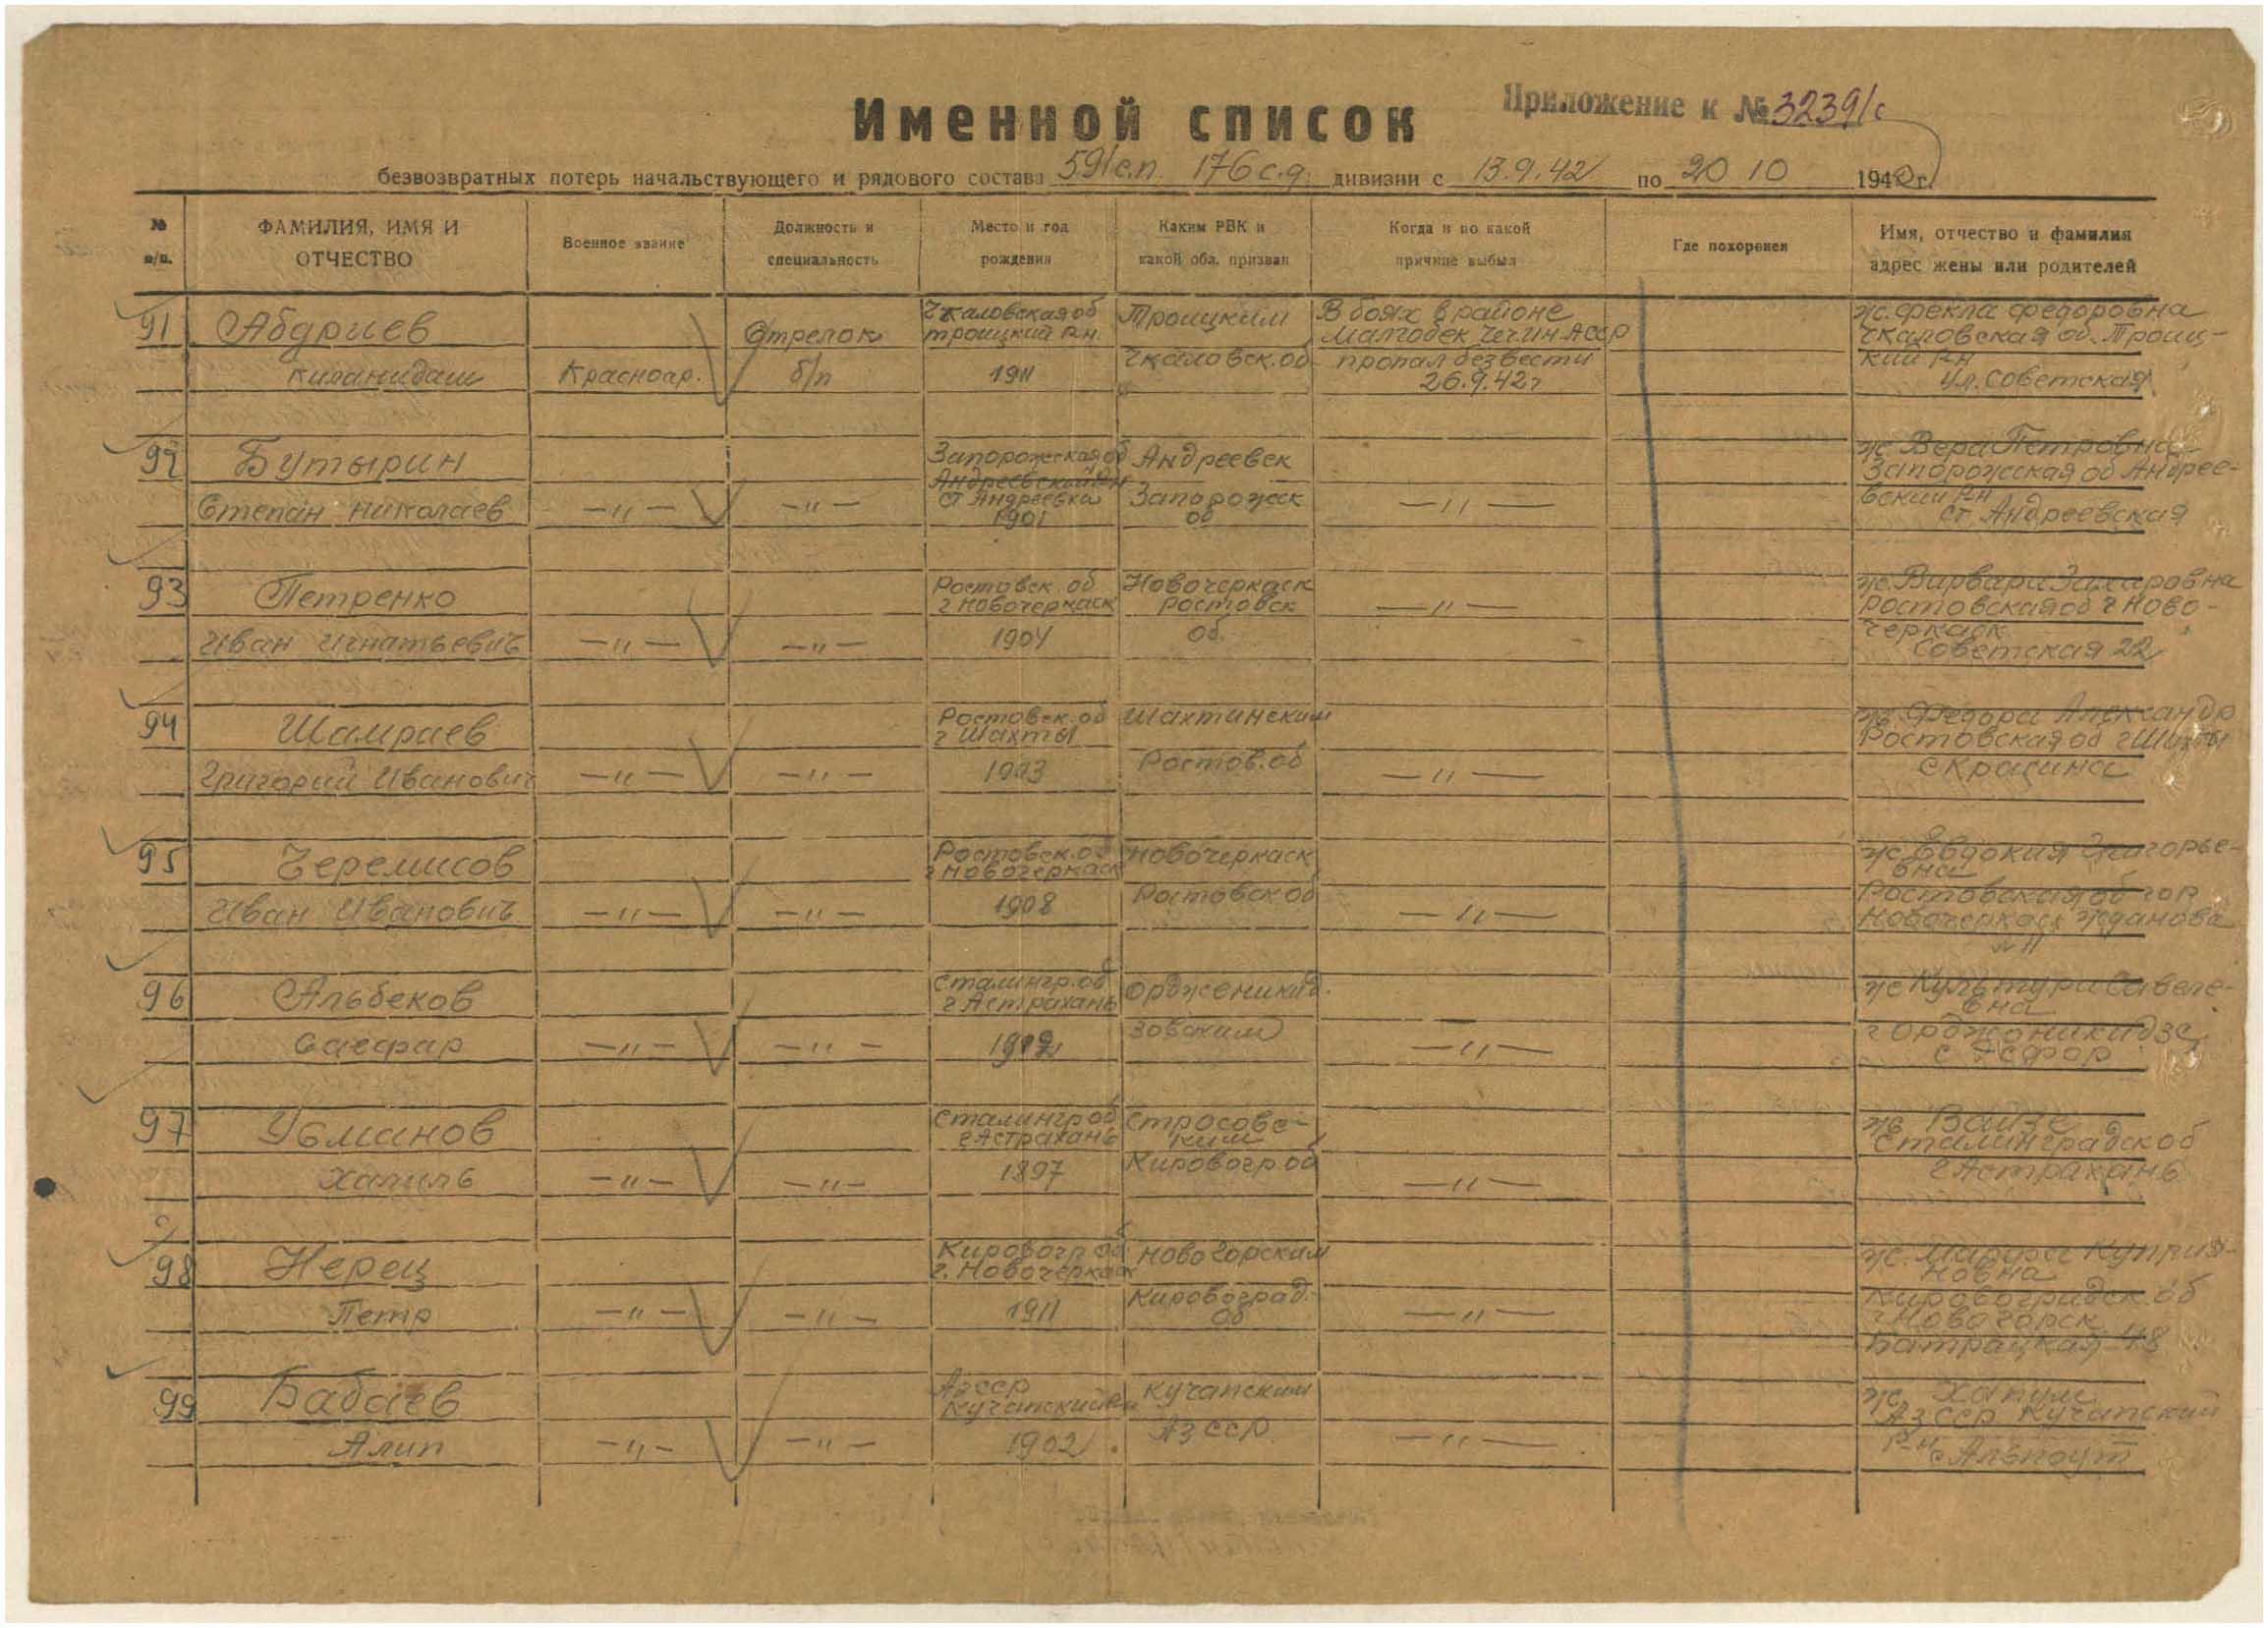 Приложение к № 3239/с
Именной список
безвозвратных потерь начальствующего и рядового состава 591 с.п. 176 с.д. дивизии с 13.9.42 по 20 10 1942 г.
№ п/п.
ФАМИЛИЯ, ИМЯ И ОТЧЕСТВО
Военное звание
Должность и специальность
Место и год рождения
Каким РВК и какой обл. призван
Когда и по какой причине выбыл
Где похоронен
Имя, отчество и фамилия адрес жены или родителей
91
Абдриев
Красноар.
Стрелок
б/п
Чкаловская об
троицкий р-н
1911
Троицким
Чкаловск. об
В боях в районе
Малгобек Чечин АССР
пропал безвести
26.9.42г
ж. Фекла Федоровна
Чкаловская об. Троиц-
кий р-н
ул. Советская
92
Бутырин
Степан Николаев
—"—
—"—
Запорожская об
Андреевский р-н
ст Андреевка
1901
Андреевск
Запорожск
об
—"—
ж Вера Петровна
Запорожская об Андрее-
вский р-н
ст Андреевская
93
Петренко
Иван Игнатьевич
—"—
—"—
Ростовск. об
г Новочеркаск
1904
Новочеркаск
Ростовск
об.
—"—
ж. Варвара Захаровна
Ростовская об г Ново-
черкаск
Советская 22
94
Шамраев
Григорий Иванович
—"—
—"—
Ростовск. об
г Шахты
Шахтинским
Ростов. об
—"—
ж. Федора Александро
Ростовская об г Шахты
95
Черемисов
Иван Иванович
—"—
—"—
Ростовск. об
г Новочеркаск
1908
Новочеркаск
Ростовск об
—"—
ж Евдокия Григорье-
вна
Ростовская об гор
Новочеркаск Жданова
№ 11
96
Альбеков
—"—
—"—
Сталингр. об
г Астрахань
Орджоникид.
зовским
—"—
вна
г Орджоникидзе
97
Усманов
Халиль
—"—
—"—
Сталингр об
г Астрахань
1897
Кировогр об
—"—
ж.
Сталинградск об
г Астрахань
98
Нерец
Петр
—"—
—"—
Кировогр об
г. Новочеркаск
1911
Новогорским
Кировоград.
об
—"—
ж. Марфа Куприя-
новна
Кировоградск. об
г Новогорск
Батрацкая 48
99
Бабаев
Алип
—"—
—"—
Аз ССР
1902
Аз ССР
—"—
ж.
Аз ССР
р-н